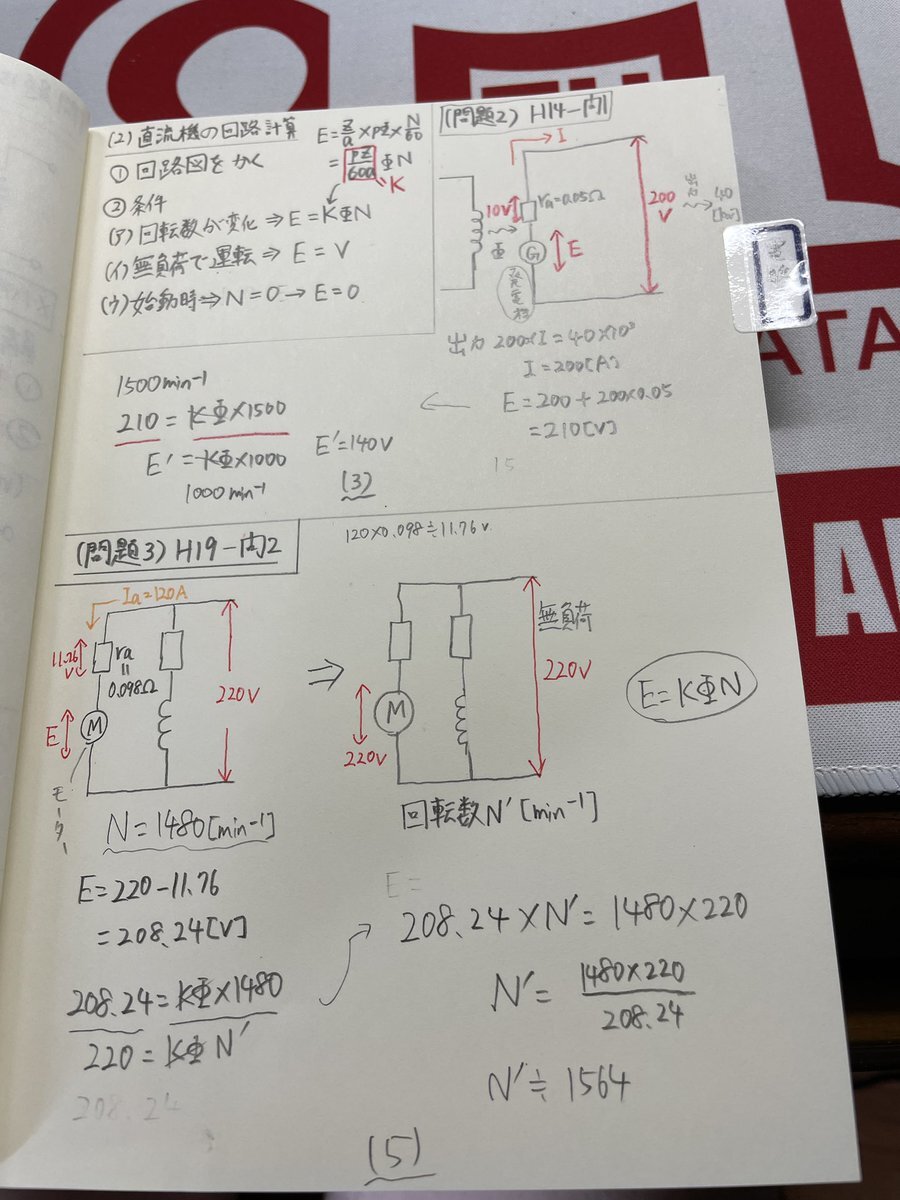 (2) 直流機の回路計算
E=Z/a×pΦ×N/60
① 回路図をかく
=pZ/60a ΦN
K
② 条件
(ア) 回転数が変化 ⇒ E=KΦN
(イ) 無負荷で運転 ⇒ E=V
(ウ) 始動時⇒N=0→E=0
(問題2) H14-問1
I
10V
ra=0.05Ω
200
V
出力
40
[kW]
Φ
G
E
発電機
出力 200×I=40×10³
I=200[A]
E=200+200×0.05
=210[V]
15
1500min-1
210=KΦ×1500
E'=KΦ×1000
E'=140V
1000min-1
(3)
(問題3) H19-問2
120×0.098≒11.76V
Ia=120A
11.76
V
ra
=
0.098Ω
220V
E
M
モーター
N=1480[min-1]
⇒
無負荷
220V
M
220V
E=KΦN
回転数N'[min-1]
E=220-11.76
=208.24[V]
208.24=KΦ×1480
220=KΦN'
208.24
E=
208.24×N'=1480×220
N'=1480×220/208.24
N'≒1564
(5)
ATA
A